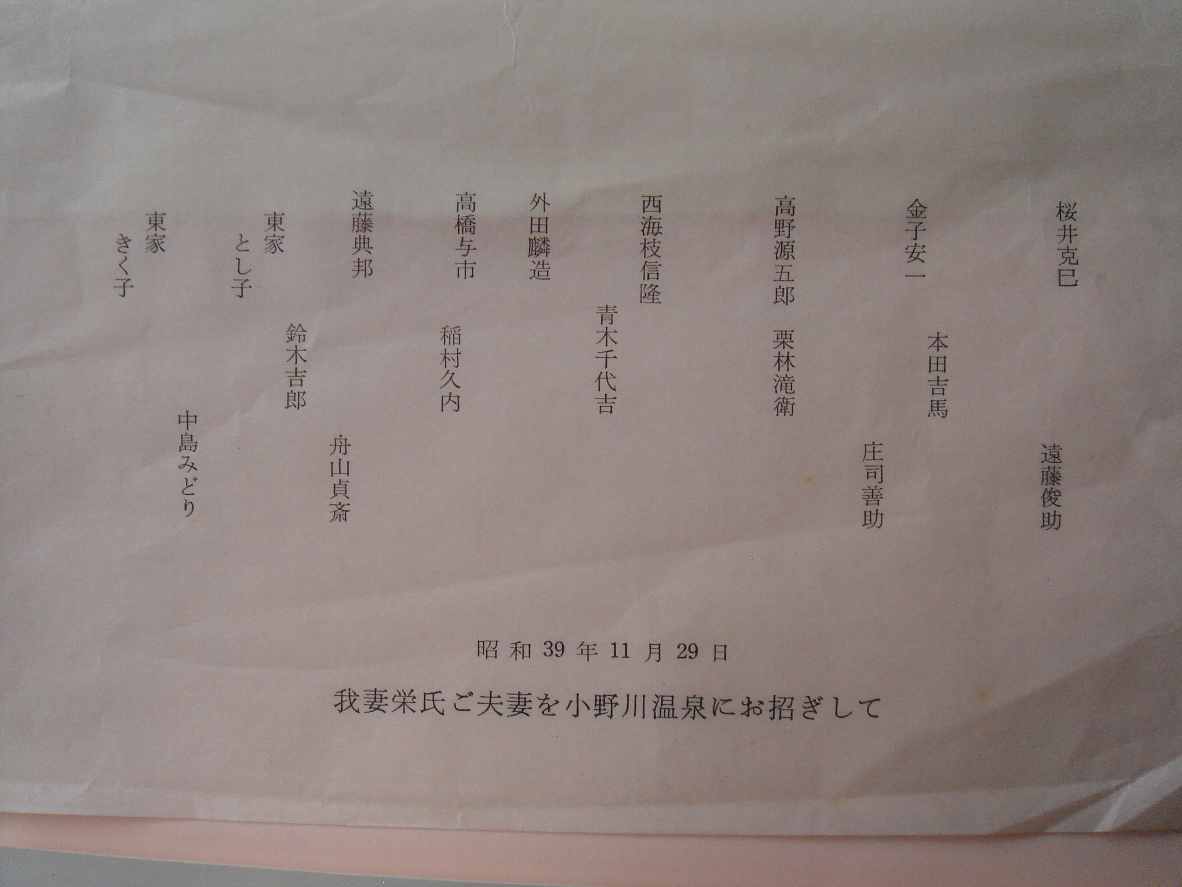 桜井克巳
遠藤俊助
本田吉馬
金子安一
庄司善助
高野源五郎
栗林滝衛
西海枝信隆
青木千代吉
外田麟造
高橋与市
稲村久内
遠藤典邦
舟山貞斎
鈴木吉郎
東家
とし子
中島みどり
東家
きく子
昭和39年11月29日
我妻栄氏ご夫妻を小野川温泉にお招ぎして